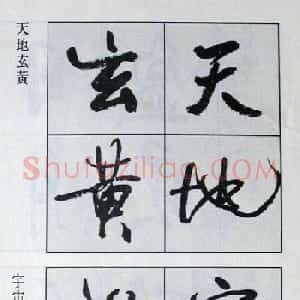 天地
玄黄
天地玄黄
ShufaZiliao.COM